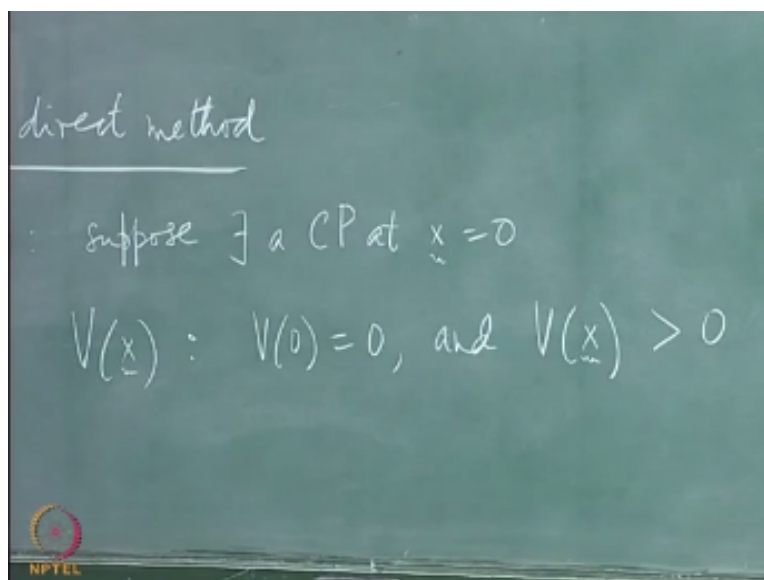 direct method
: suppose ∃ a CP at x = 0
V(x) : V(0) = 0, and V(x) > 0
NPTEL